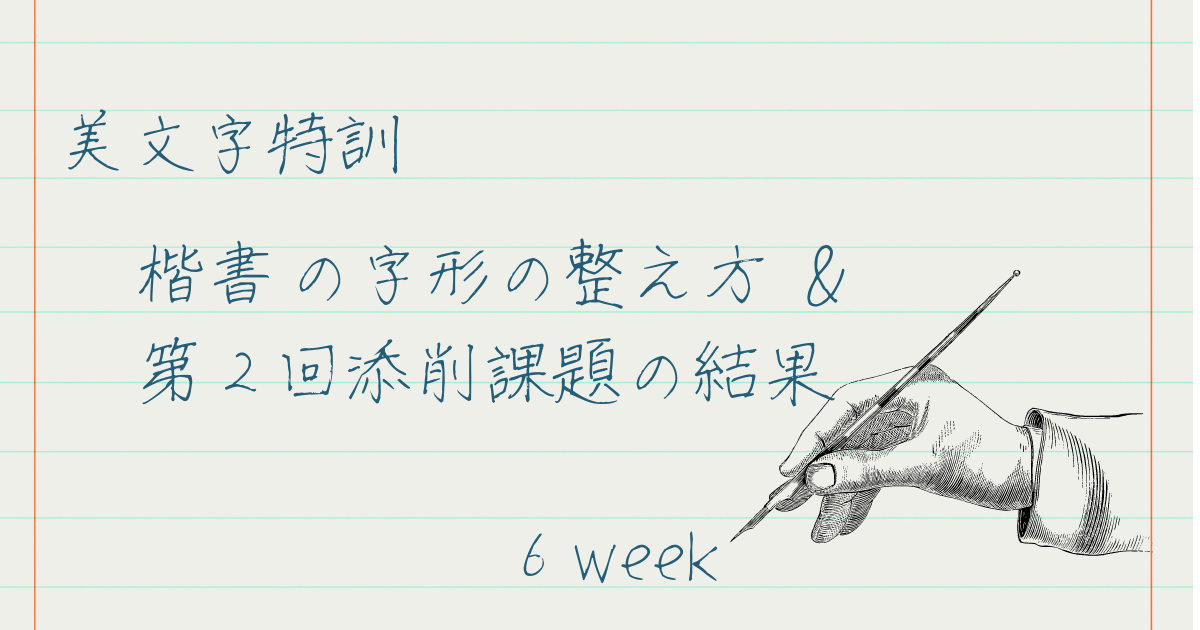 美文字特訓
楷書の字形の整え方 &
第2回添削課題の結果
6 week